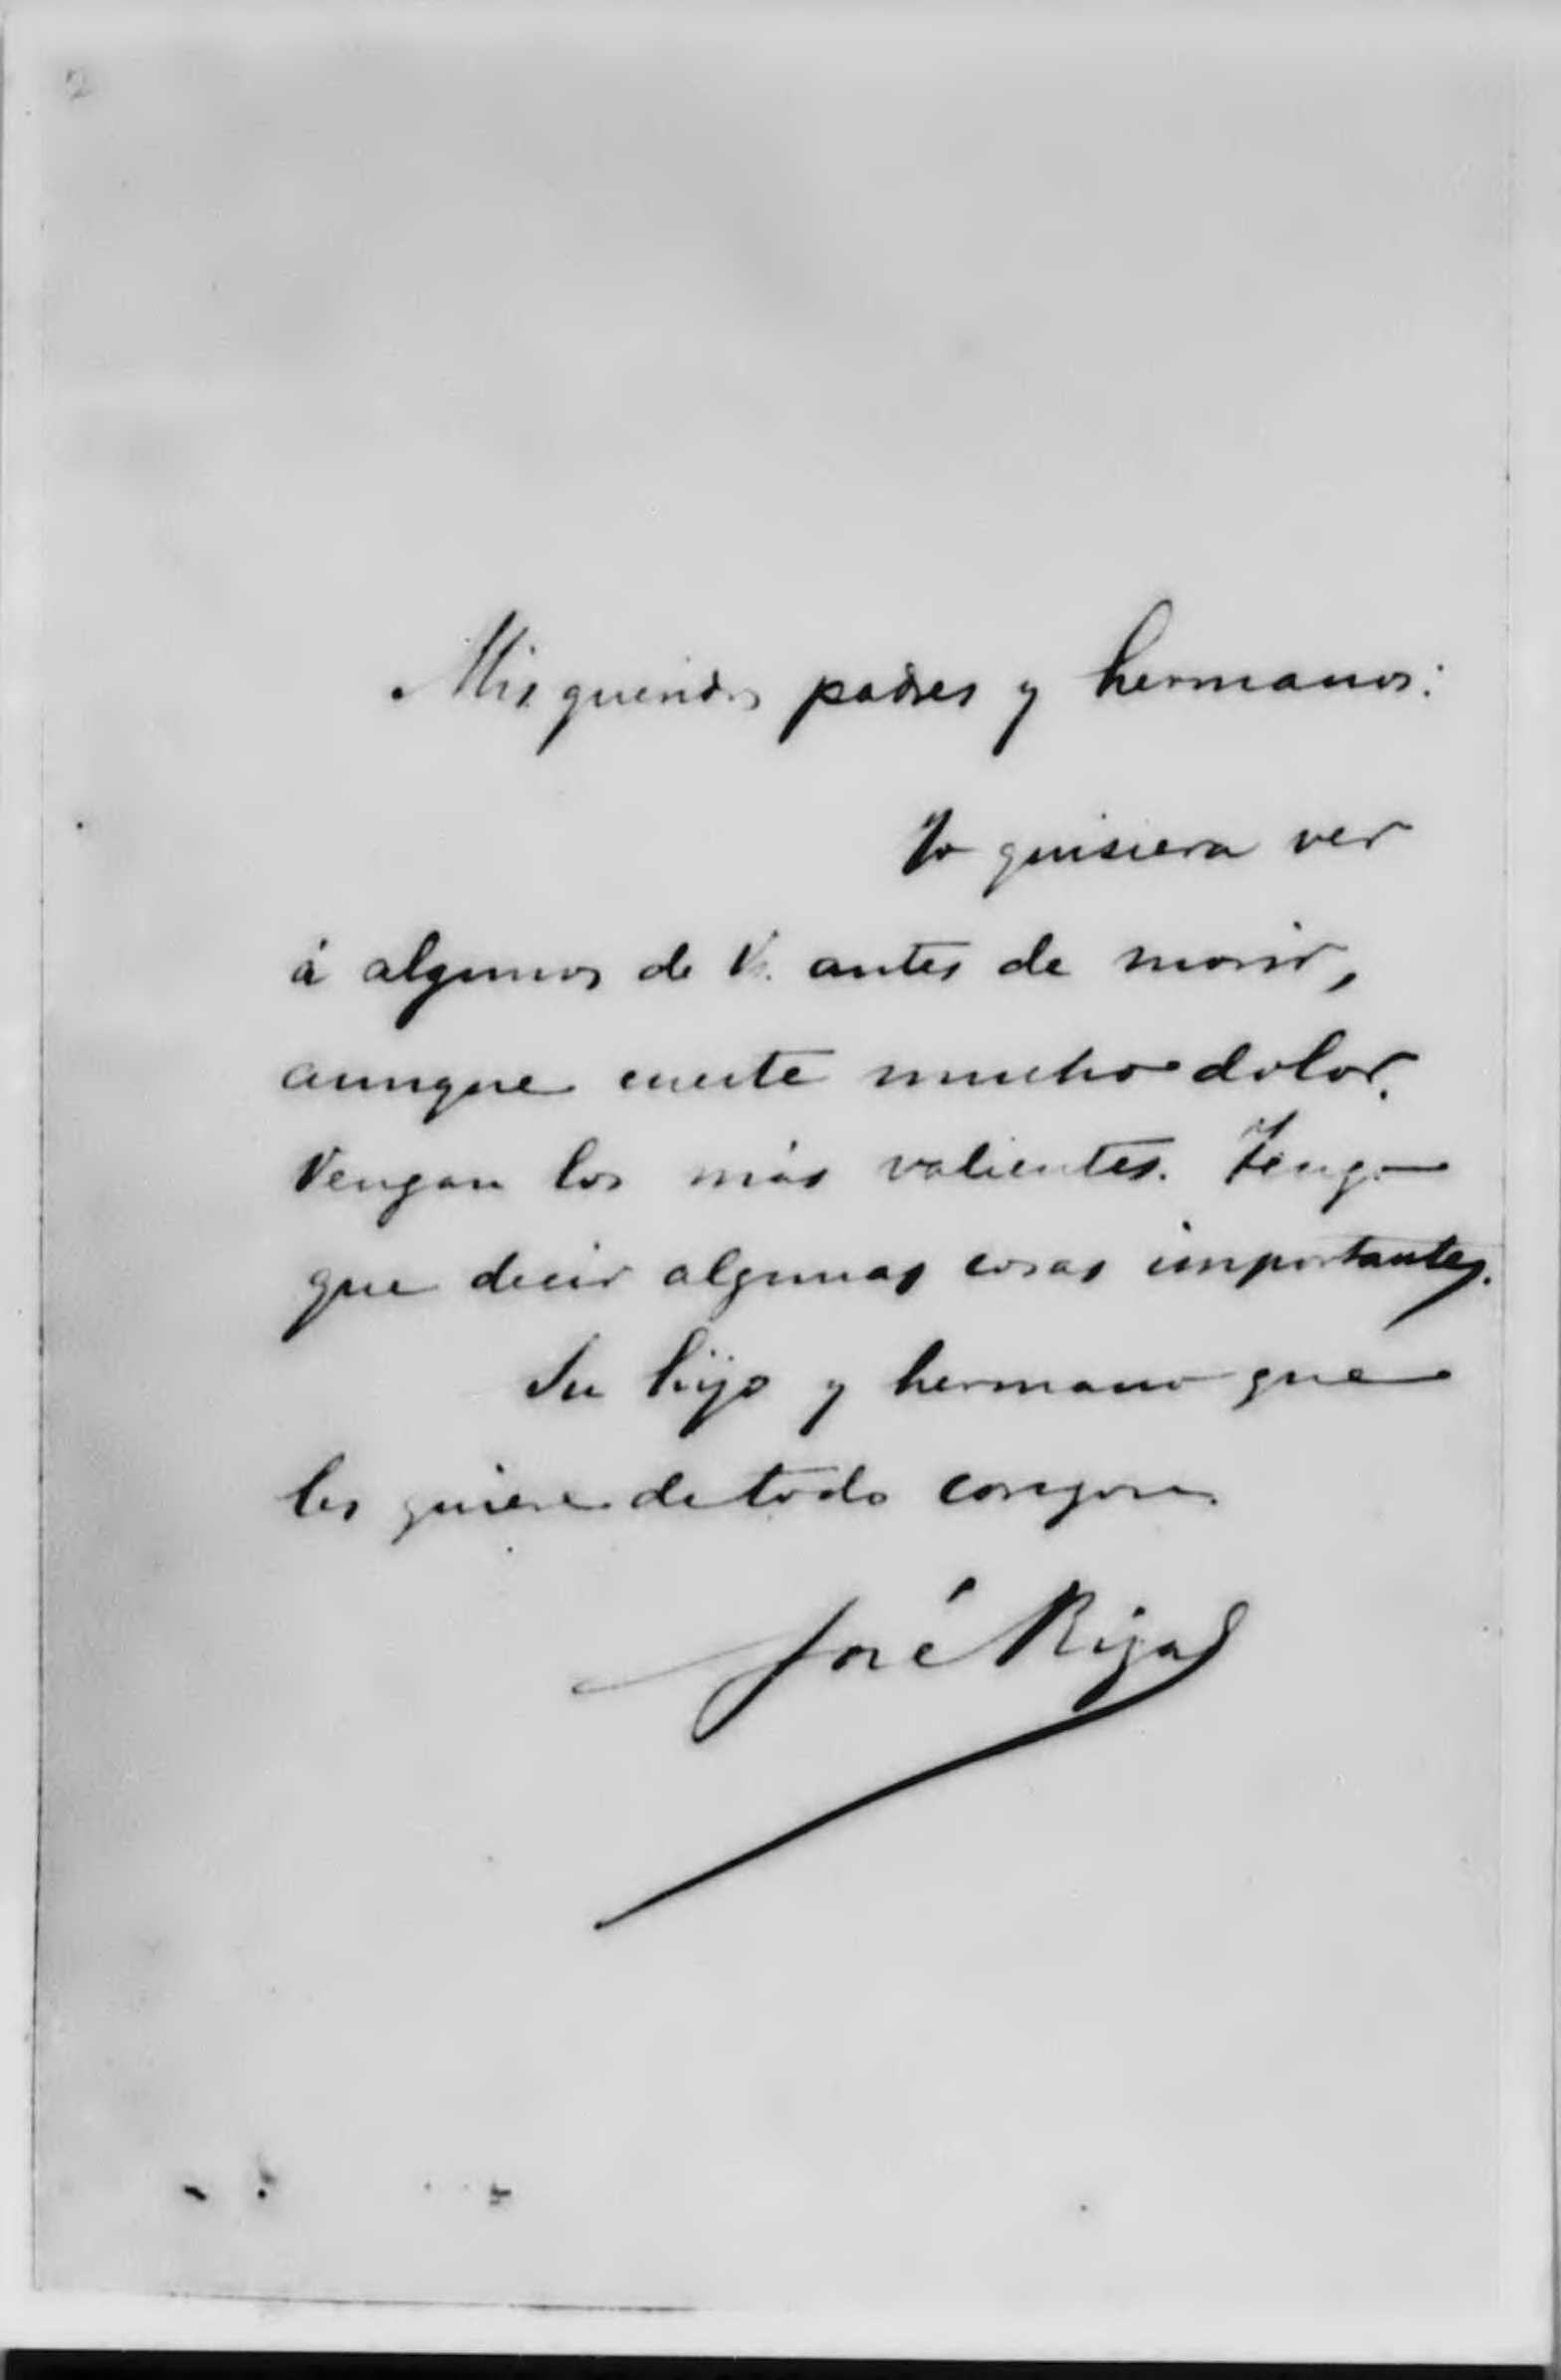 2
Mis queridos padres y hermanos:
Yo quisiera ver
á algunos de Vs. antes de morir,
aunque cueste mucho dolor.
Vengan los más valientes. Tengo
que decir algunas cosas importantes.
Su hijo y hermano que
les quiere de todo corazon.
José Rizal